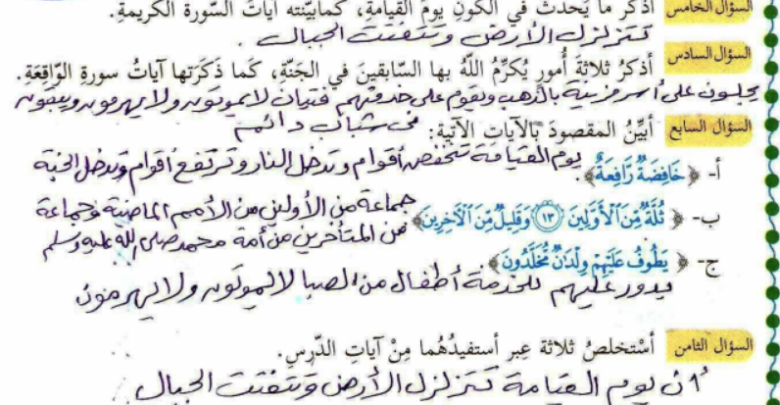 السؤال الخامس أذكر ما يَحدث في الكونِ يومَ القيامةِ، كمابيّنته آيات السّورة الكريمةِ.
تتزلزل الأرض وتتفتت الجبال.
السؤال السادس أذكرُ ثلاثةَ أُمورٍ يُكرِّمُ اللّهُ بها السّابقينَ في الجَنّةِ، كَما ذَكَرَتها آياتُ سورةِ الواقِعَةِ.
يجلسون على أسر مزينة بالذهب ويقوم على خدمتهم فتيان لا يموتون ولا يهرمون ويبقون
في شباب دائم
السؤال السابع أبيِّنُ المقصودَ بالآياتِ الآتيةِ:
أ- ﴿ خَافِضَةٌ رَّافِعَةٌ ﴾. يوم القيامة تخفض أقوام وتدخل النار وترتفع أقوام وتدخل الجنة
ب- ﴿ ثُلَّةٌ مِّنَ ٱلْأَوَّلِينَ ١٣ وَقَلِيلٌ مِّنَ ٱلْآخِرِينَ ﴾ جماعة من الأولين من الأمم الماضية وجماعة
من المتأخرين من أمة محمد صلى الله عليه وسلم
ج- ﴿ يَطُوفُ عَلَيْهِمْ وِلْدَانٌ مُّخَلَّدُونَ ﴾
يدور عليهم للخدمة أطفال من الصبا لا يموتون ولا يهرمون
السؤال الثامن أستخلصُ ثلاثة عِبر أستفيدُهُما مِنْ آياتِ الدّرسِ.
1 ان يوم القيامة تتزلزل الأرض وتتفتت الجبال